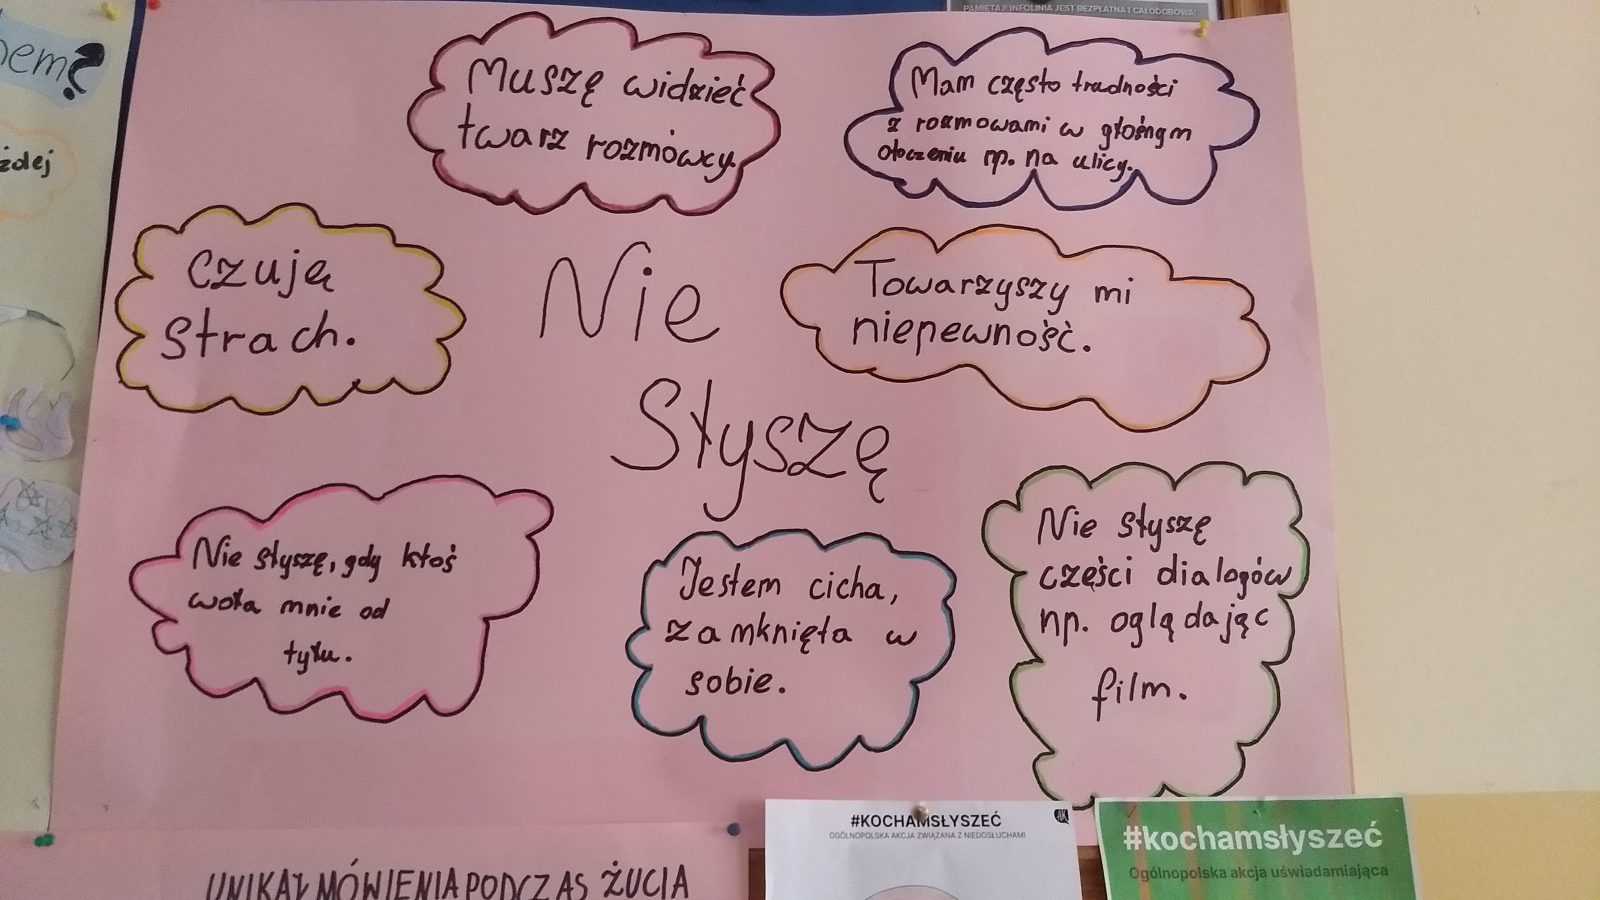 PAMIĘTAJ! INFOLINIA JEST BEZPŁATNA I CAŁODOBOWA!
Muszę widzieć
twarz rozmówcy.
Mam często trudności
z rozmowami w głośnym
otoczeniu np. na ulicy.
Czuję
strach.
Nie
Słyszę
Towarzyszy mi
niepewność.
Nie słyszę, gdy ktoś
woła mnie od
tyłu.
Jestem cicha,
zamknięta w
sobie.
Nie słyszę
części dialogów
np. oglądając
film.
#KOCHAMSŁYSZEĆ
OGÓLNOPOLSKA AKCJA ZWIĄZANA Z NIEDOSŁUCHAMI
#kochamsłyszeć
Ogólnopolska akcja uświadamiająca
UNIKAŁ MÓWIENIA PODCZAS ŻUCIA